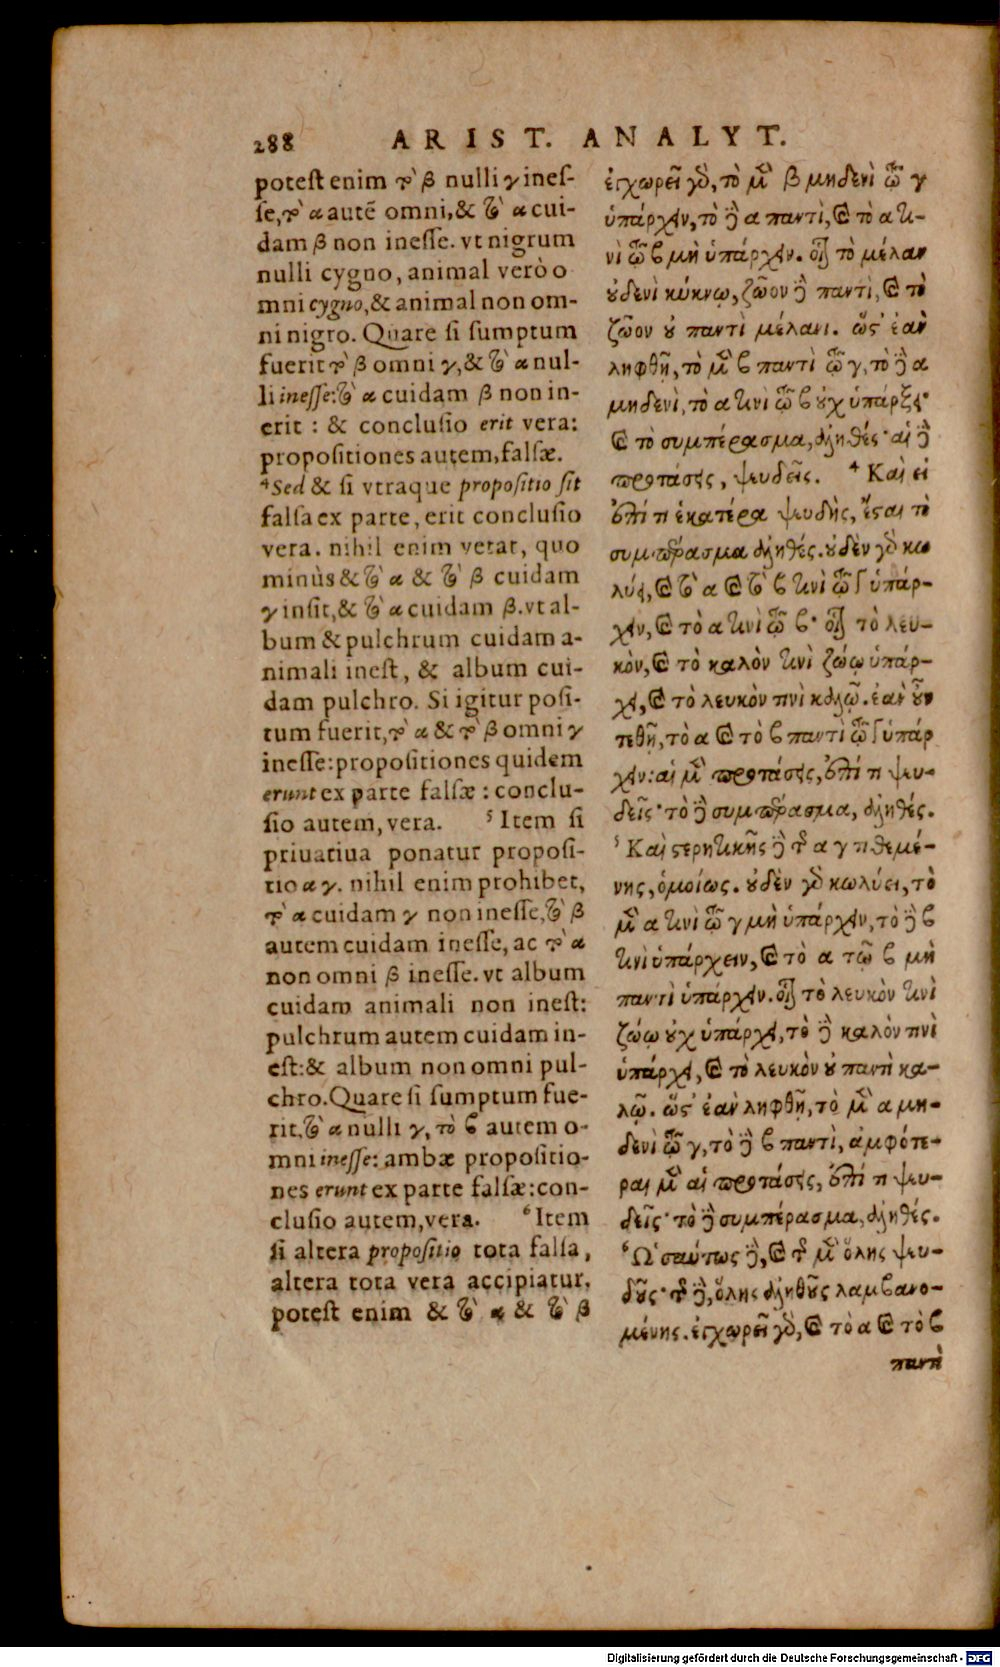 288 ARIST. ANALYT.
potest enim τὸ β nulli γ ines-
se, τὸ α autē omni, & τὸ α cui-
dam β non inesse. vt nigrum
nulli cygno, animal verò o
mni cygno, & animal non om-
ni nigro. Quare si sumptum
fuerit τὸ β omni γ, & τὸ α nul-
li inesse: τὸ α cuidam β non in-
erit : & conclusio erit vera:
propositiones autem, falsæ.
⁴Sed & si vtraque propositio sit
falsa ex parte, erit conclusio
vera. nihil enim vetat, quo
minùs & τὸ α & τὸ β cuidam
γ insit, & τὸ α cuidam β. vt al-
bum & pulchrum cuidam a-
nimali inest, & album cui-
dam pulchro. Si igitur posi-
tum fuerit, τὸ α & τὸ β omni γ
inesse: propositiones quidem
erunt ex parte falsæ : conclu-
sio autem, vera. ⁵ Item si
priuatiua ponatur proposi-
tio α γ. nihil enim prohibet,
τὸ α cuidam γ non inesse, τὸ β
autem cuidam inesse, ac τὸ α
non omni β inesse. vt album
cuidam animali non inest:
pulchrum autem cuidam in-
est: & album non omni pul-
chro. Quare si sumptum fue-
rit, τὸ α nulli γ, τὸ ϐ autem o-
mni inesse: ambæ propositio-
nes erunt ex parte falsæ: con-
clusio autem, vera. ⁶ Item
si altera propositio tota falsa,
altera tota vera accipiatur.
potest enim & τὸ α & τὸ β
ἐγχωρεῖ γὸ, τὸ μὲν β μηδενὶ τῷ γ
ὑπάρχειν, τὸ δὲ α παντὶ, καὶ τὸ α τι-
νὶ τῷ ϐ μὴ ὑπάρχειν. οἷον τὸ μέλαν
οὐδενὶ κύκνῳ, ζῶον δὲ παντὶ, καὶ τὸ
ζῶον οὐ παντὶ μέλανι. ὥστ' ἐὰν
ληφθῇ, τὸ μὲν ϐ παντὶ τῷ γ, τὸ δὲ α
μηδενὶ, τὸ α τινὶ τῷ ϐ οὐχ ὑπάρξει·
καὶ τὸ συμπέρασμα, ἀληθές· αἱ δὲ
προτάσεις, ψευδεῖς. ⁴ Καὶ εἰ
ἐπί τι ἑκατέρα ψευδὴς, ἔσται τὸ
συμπέρασμα ἀληθές. οὐδὲν γὸ κω
λύει, καὶ τὸ α καὶ τὸ ϐ τινὶ τῷ γ ὑπάρ-
χειν, καὶ τὸ α τινὶ τῷ ϐ· οἷον τὸ λευ-
κὸν, καὶ τὸ καλὸν τινὶ ζώῳ ὑπάρ-
χει, καὶ τὸ λευκὸν τινὶ καλῷ. ἐὰν οὖν
τεθῇ, τὸ α καὶ τὸ ϐ παντὶ τῷ γ ὑπάρ
χειν: αἱ μὲν προτάσεις, ἐπί τι ψευ-
δεῖς· τὸ δὲ συμπέρασμα, ἀληθές.
⁵ Καὶ στερητικῆς δὲ τῆς α γ τιθεμέ-
νης, ὁμοίως. οὐδὲν γὸ κωλύει, τὸ
μὲν α τινὶ τῷ γ μὴ ὑπάρχειν, τὸ δὲ ϐ
τινὶ ὑπάρχειν, καὶ τὸ α τῷ ϐ μὴ
παντὶ ὑπάρχειν. οἷον τὸ λευκὸν τινὶ
ζώῳ οὐχ ὑπάρχει, τὸ δὲ καλὸν τινὶ
ὑπάρχει, καὶ τὸ λευκὸν οὐ παντὶ κα-
λῷ. ὥστ' ἐὰν ληφθῇ, τὸ μὲν α μη-
δενὶ τῷ γ, τὸ δὲ ϐ παντὶ, ἀμφότε-
ραι μὲν αἱ προτάσεις, ἐπί τι ψευ-
δεῖς· τὸ δὲ συμπέρασμα, ἀληθές.
⁶ Ὡσαύτως δὲ, καὶ τῆς μὲν ὅλης ψευ-
δοῦς· τῆς δὲ, ὅλης ἀληθοῦς λαμϐανο-
μένης. ἐγχωρεῖ γὸ, καὶ τὸ α καὶ τὸ ϐ
παντὶ
Digitalisierung gefördert durch die Deutsche Forschungsgemeinschaft - DFG